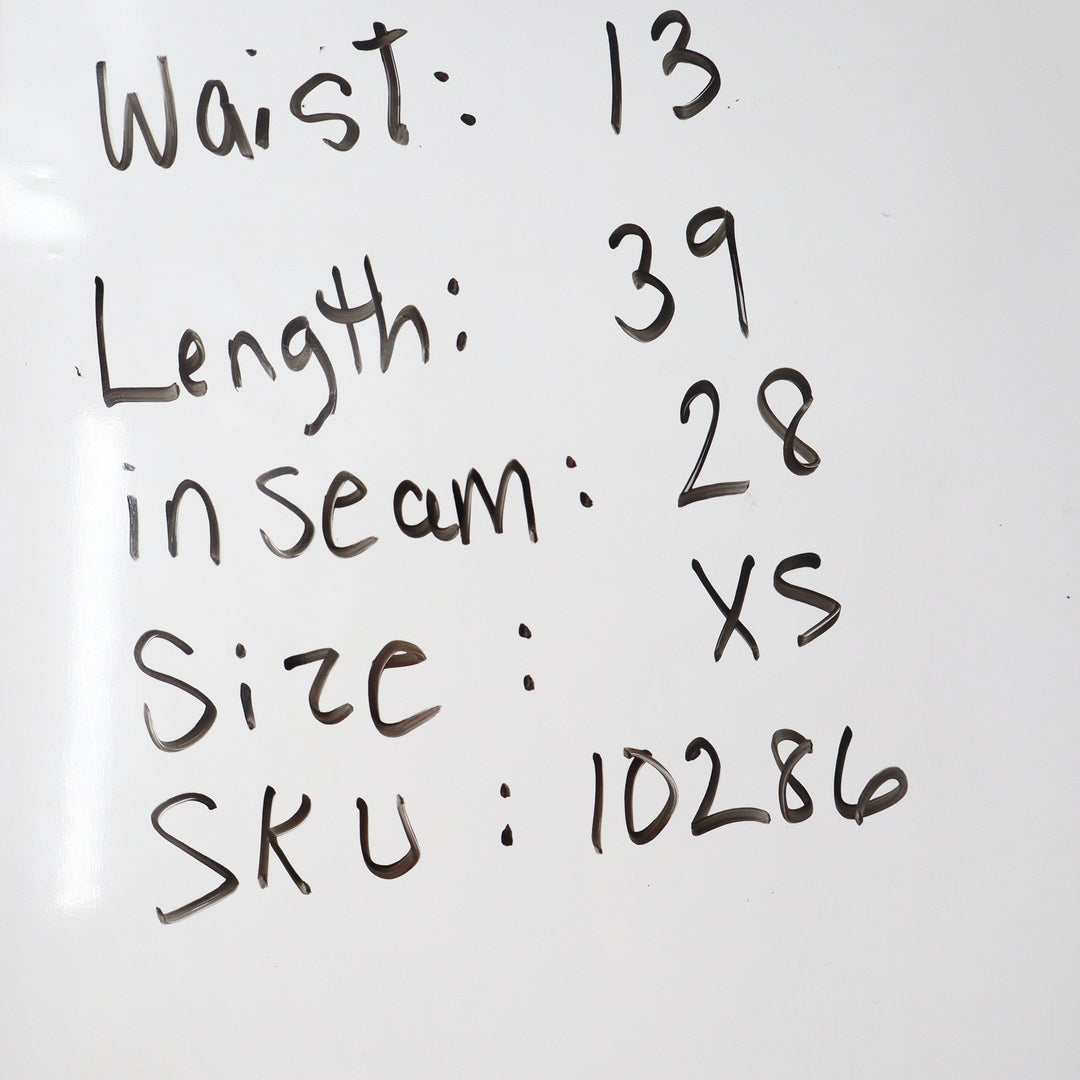 Waist: 13
Length: 39
inseam: 28
Size: XS
SKU: 10286